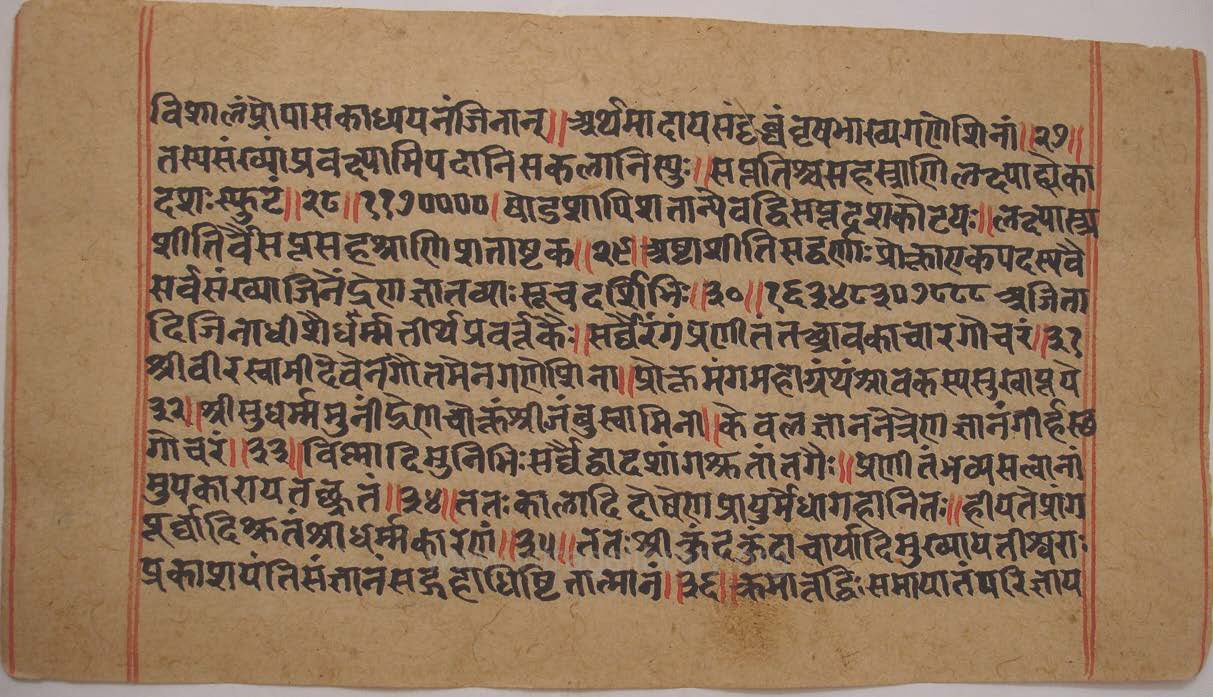 विशालं प्रोपासकाध्ययनं जिनान् ॥ अर्थमादाय संदृब्धं वृषभाख्यगणेशिनां ॥ २७ ॥
तस्य संख्यां प्रवक्ष्यामि पदानि सकलानि स्युः ॥ सप्ततिश्च सहस्राणि लक्षाण्येका
दश स्फुटं ॥ २८ ॥ ११७०००० । षोडशापि शतान्येव द्विसप्तदशकोटयः ॥ लक्षास्त्र्य
शीतिर्वै सप्तसहश्राणि शताष्टक ॥ २९ ॥ अष्टाशीति सद्वर्णाः प्रोक्ता एकपदस्य वै
सर्वसंख्या जिनेंद्रेण ज्ञातव्याः सूचदर्शिभिः ॥ ३० ॥ १६३४८३०७८८८ अजिता
दिजिनाधीशैर्धर्म्मतीर्थप्रवर्त्तकैः ॥ सर्वैरंगं प्रणीतं तच्छ्रावकाचारगोचरं ॥ ३१
श्रीवीरस्वामीदेवेन गौतमेन गणेशिना ॥ प्रोक्तमंगमहोग्रंथं श्रावकस्य सुखाप्तये
३२ ॥ श्रीसुधर्म्ममुनींद्रेण चोक्तं श्रीजंबुस्वामिना ॥ केवलज्ञाननेत्रेण ज्ञानं गार्हस्थ
गोचरं ॥ ३३ ॥ विष्णादिमुनिभिः सर्वै द्वादशांगश्रुतांतगैः ॥ प्रणीतं भव्यसत्वानां
मुपकाराय तच्छ्रुतं ॥ ३४ ॥ ततः कालादिदोषेण प्रायुर्मेधांगहानितः ॥ हीयते प्रांग
पूर्वादिश्रुतं श्रीधर्म्मकारणं ॥ ३५ ॥ ततः श्रीकुंदकुंदाचार्यादिमुख्या यतीश्वराः
प्रकाशयंति संज्ञानं सद्गृहाधिष्टितात्मानं ॥ ३६ ॥ क्रमात्तद्धि समायातं परिज्ञाय